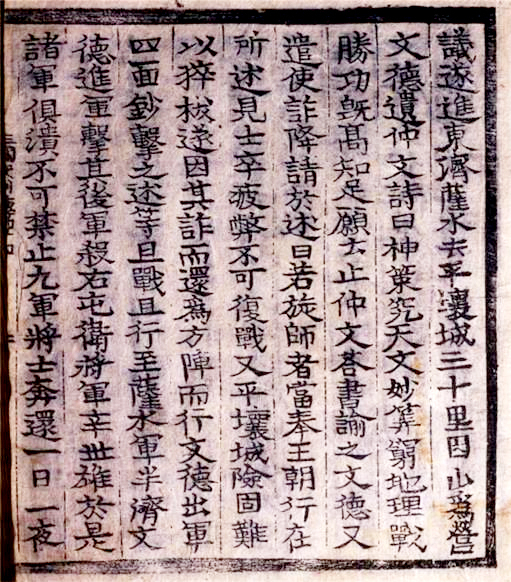 議遂進東濟薩水去平壤城三十里因山爲營
文德遺仲文詩曰神策究天文妙筭窮地理戰
勝功旣高知足願云止仲文荅書諭之文德又
遣使詐降請於述曰若旋師者當奉王朝行在
所述見士卒疲弊不可復戰又平壤城險固難
以猝拔遂因其詐而還爲方陣而行文德出軍
四面鈔擊之述等且戰且行至薩水軍半濟文
德進軍擊其後軍殺右屯衛將軍辛世雄於是
諸軍俱潰不可禁止九軍將士奔還一日一夜